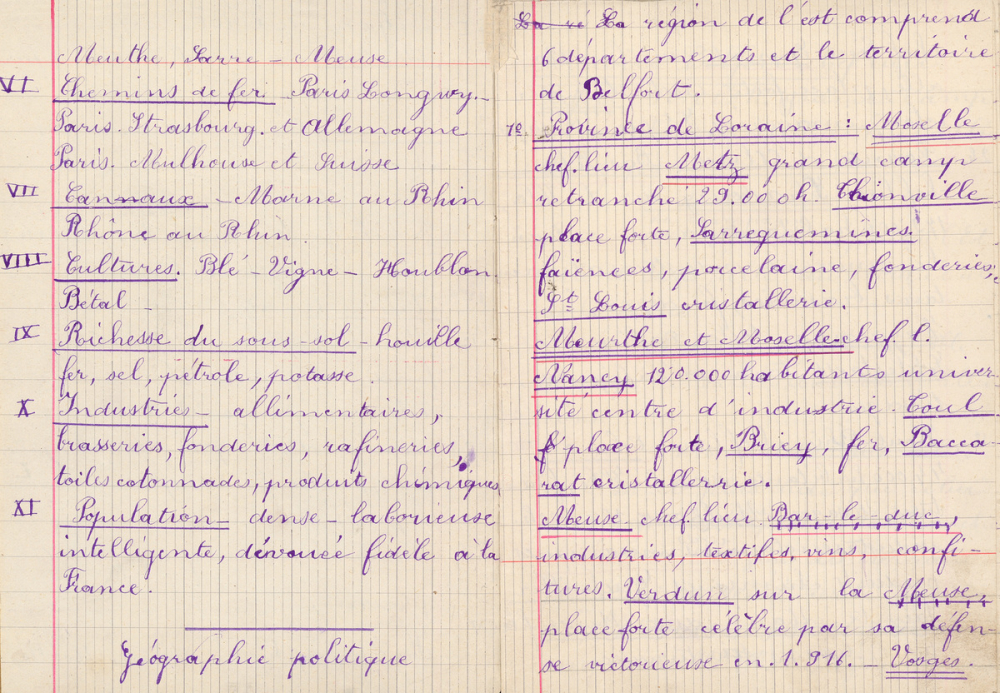 Meuthe, Sarre - Meuse
VI Chemins de fer Paris Longwy.-
Paris. Strasbourg. et Allemagne
Paris. Mulhouse et Suisse
VII Cannaux - Marne au Rhin
Rhône au Rhin
VIII Cultures. Blé - Vigne - Houblon
Bétal -
IX Richesse du sous-sol - houille
fer, sel, pétrole, potasse.
X Industries - allimentaires,
brasseries, fonderies, rafineries,
toiles cotonnades, produits chimiques
XI Population - dense - laborieuse
intelligente, dévouée fidèle à la
France.
Géographie politique
La ré La région de l'est comprend
6 départements et le territoire
de Belfort.
1º Province de Loraine : Moselle
chef.lieu Metz grand camp
retranché 29.00 0h. Thionville
place forte, Sarreguemines.
faïences, porcelaine, fonderies,
St Louis cristallerie.
Meurthe et Moselle chef. l.
Nancy 120.000 habitants univer
sité centre d'industrie. Toul
place forte, Briey, fer, Bacca
rat cristallerrie.
Meuse chef lieu Bar-le-duc,
industries, textifes, vins, confi-
tures. Verdun sur la Meuse,
place forte célèbre par sa défen-
se victorieuse en. 1.916. - Vosges.